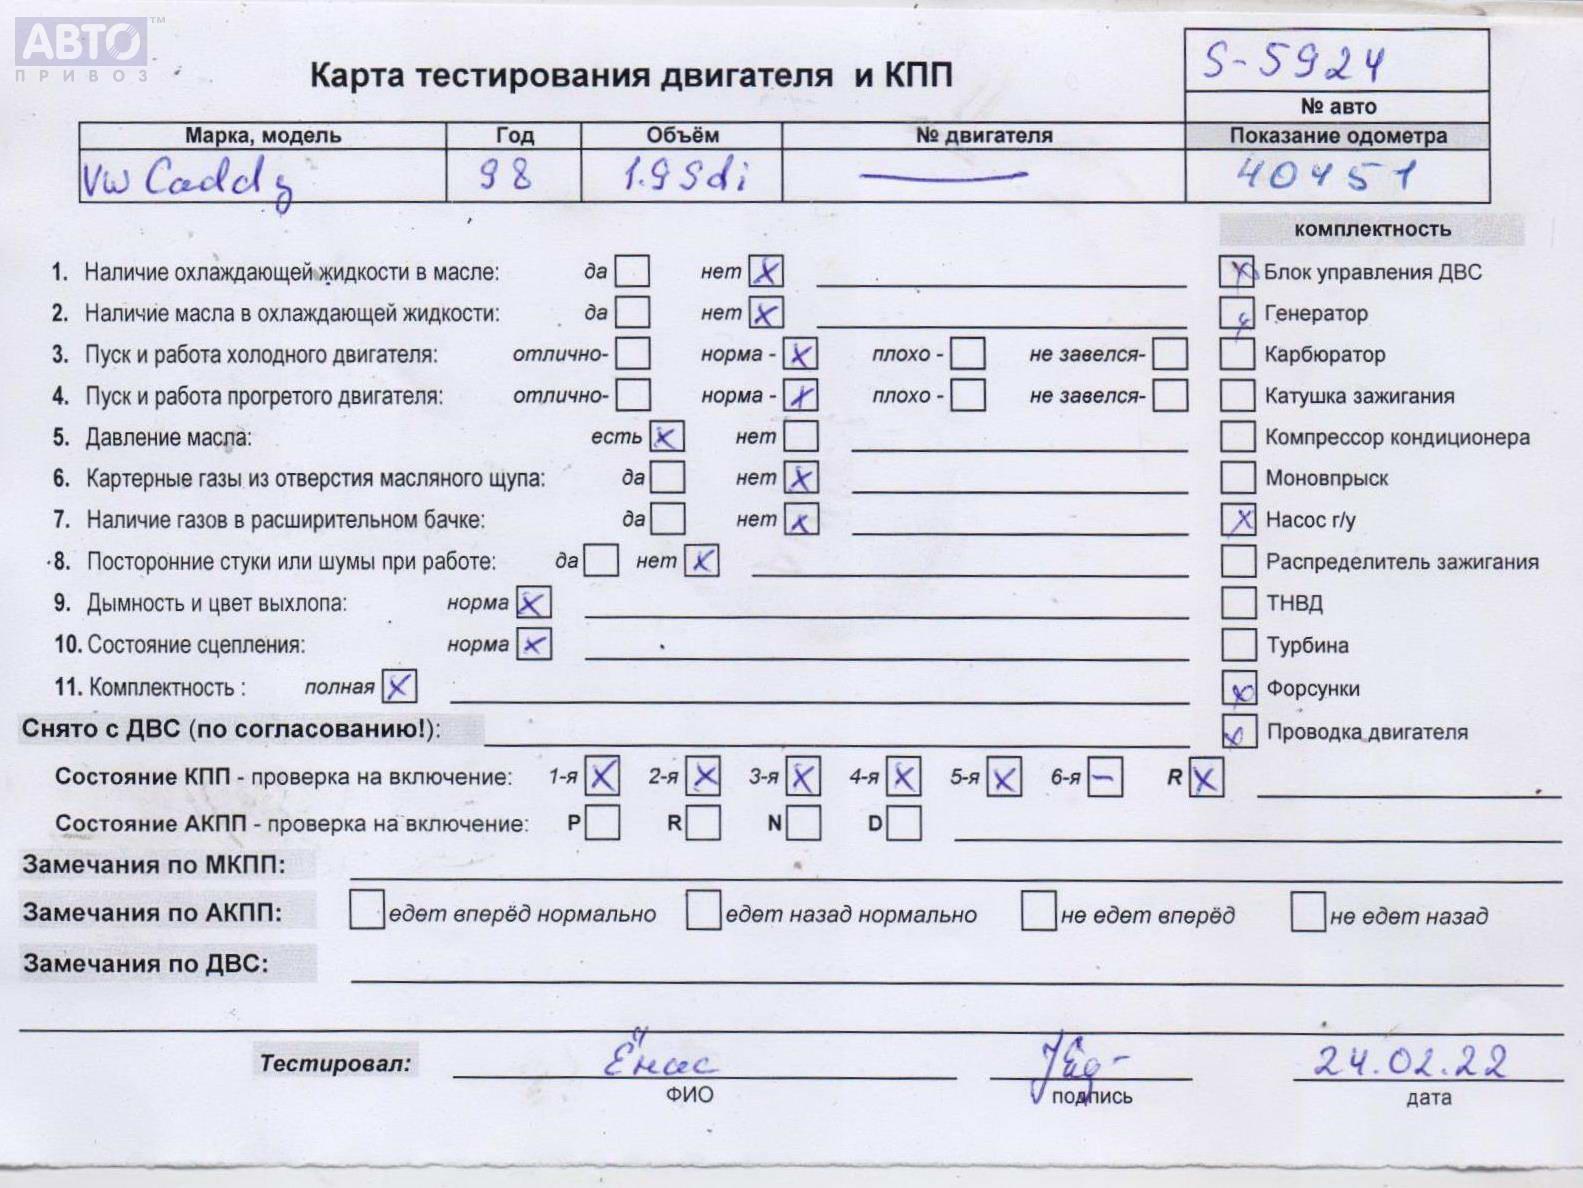 АВТО™
ПРИВОЗ
Карта тестирования двигателя и КПП
S-5924
№ авто
Марка, модель Год Объём № двигателя Показание одометра
VW Caddy 98 1.9 Sdi — 40451
комплектность
1. Наличие охлаждающей жидкости в масле: да нет x Блок управления ДВС
2. Наличие масла в охлаждающей жидкости: да нет x Генератор
3. Пуск и работа холодного двигателя: отлично- норма - x плохо - не завелся- Карбюратор
4. Пуск и работа прогретого двигателя: отлично- норма - x плохо - не завелся- Катушка зажигания
5. Давление масла: есть x нет Компрессор кондиционера
6. Картерные газы из отверстия масляного щупа: да нет x Моновпрыск
7. Наличие газов в расширительном бачке: да нет x x Насос г/у
8. Посторонние стуки или шумы при работе: да нет x Распределитель зажигания
9. Дымность и цвет выхлопа: норма x ТНВД
10. Состояние сцепления: норма x Турбина
11. Комплектность : полная x x Форсунки
Снято с ДВС (по согласованию!): x Проводка двигателя
Состояние КПП - проверка на включение: 1-я x 2-я x 3-я x 4-я x 5-я x 6-я – R x
Состояние АКПП - проверка на включение: P R N D
Замечания по МКПП:
Замечания по АКПП: едет вперёд нормально едет назад нормально не едет вперёд не едет назад
Замечания по ДВС:
Тестировал: Ёнас 24.02.22
ФИО подпись дата